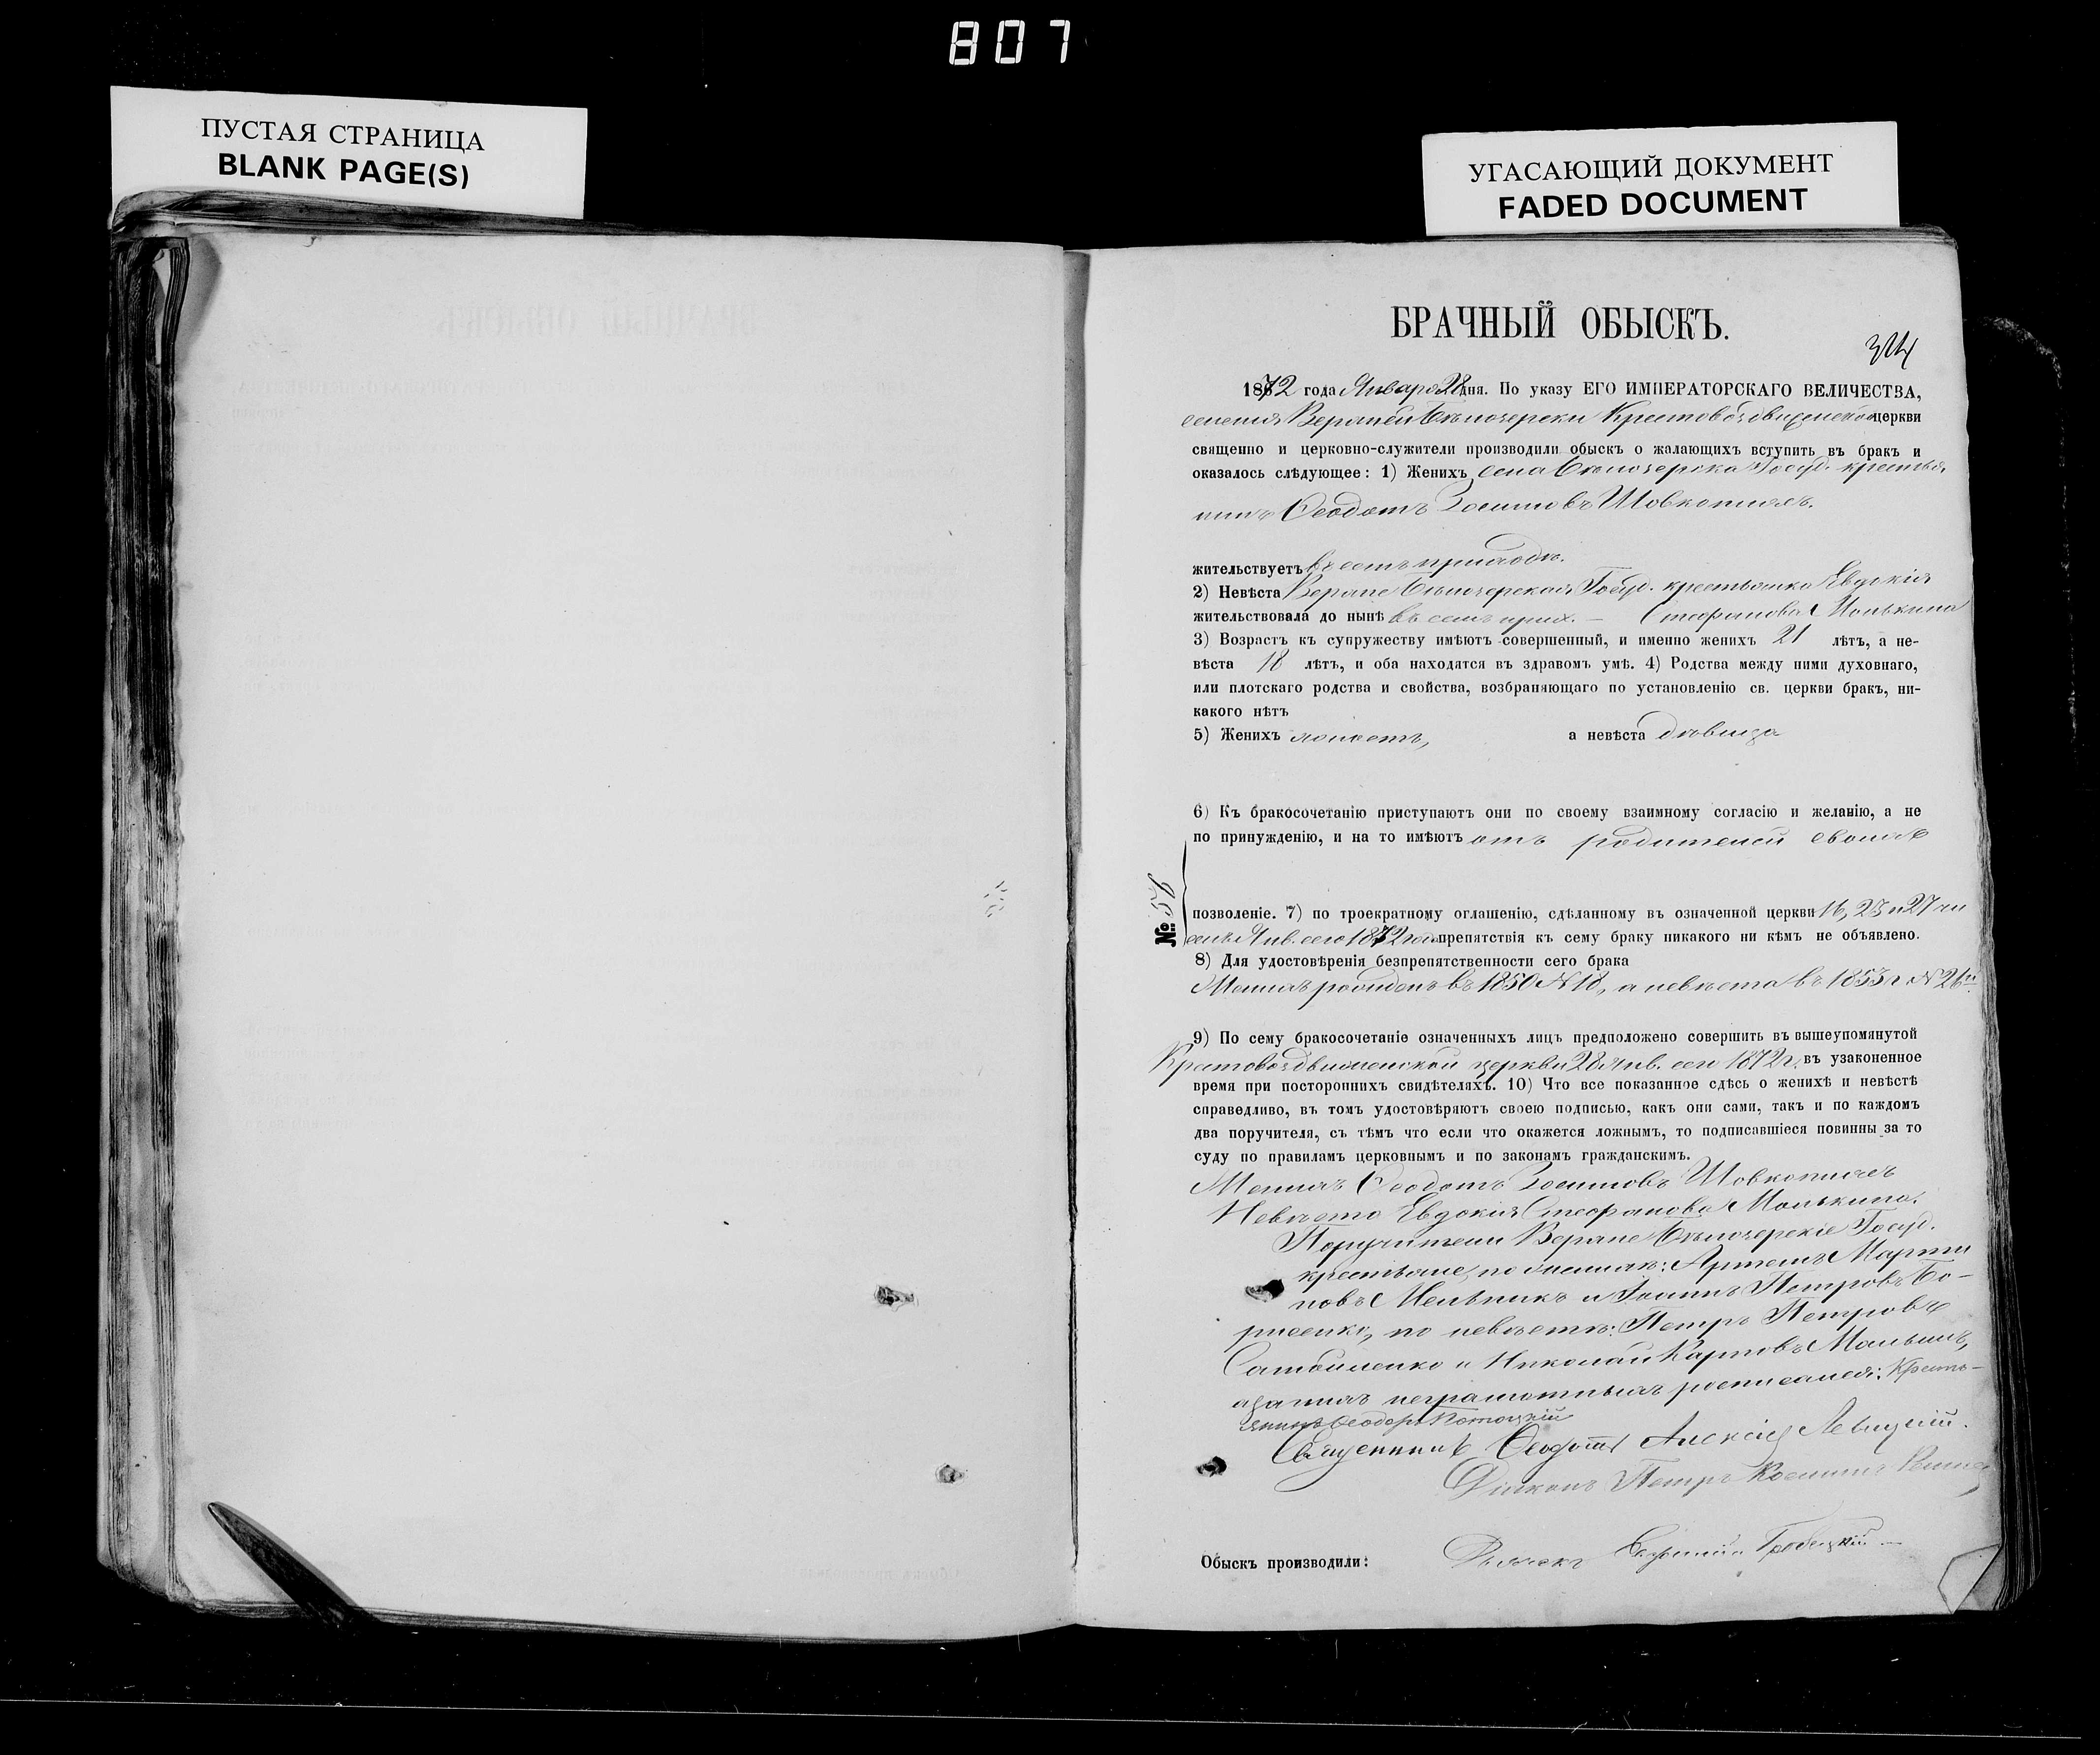 807
ПУСТАЯ СТРАНИЦА
BLANK PAGE(S)
УГАСАЮЩИЙ ДОКУМЕНТ
FADED DOCUMENT
БРАЧНЫЙ ОБЫСКЪ.
1872 года Января 28 дня. По указу ЕГО ИМПЕРАТОРСКАГО ВЕЛИЧЕСТВА,
селенія Верхней Бѣлозерки Крестовоздвиженской церкви
священно и церковно-служители производили обыскъ о жалающихъ вступить въ бракъ и
оказалось слѣдующее: 1) Женихъ села Бѣлозерска Госуд. крестья
нинъ Ѳеодотъ Зосимовъ Шовкопляс
жительствуетъ въ семъ приходѣ.
2) Невѣста Верхне Бѣлозерская Госуд. крестьянка Евдокія
жительствовала до нынѣ въ семъ прих. — Стефанова
3) Возрастъ къ супружеству имѣютъ совершенный, и именно женихъ 21 лѣтъ, а не-
вѣста 18 лѣтъ, и оба находятся въ здравомъ умѣ. 4) Родства между ними духовнаго,
или плотскаго родства и свойства, возбраняющаго по установленію св. церкви бракъ, ни-
какого нѣтъ
5) Женихъ холостъ, а невѣста дѣвица
6) Къ бракосочетанію приступаютъ они по своему взаимному согласію и желанію, а не
по принужденію, и на то имѣютъ отъ родителей своихъ
№
позволеніе. 7) по троекратному оглашенію, сдѣланному въ означенной церкви 16, 23 и 27 чи
селъ Янв. сего 1872 года препятствія къ сему браку никакого ни кѣмъ не объявлено.
8) Для удостовѣренія безпрепятственности сего брака
Женихъ рожденъ въ 1850 № 18, а невѣста въ 1853 г. № 26
9) По сему бракосочетаніе означенныхъ лицъ предположено совершить въ вышеупомянутой
Крестовоздвиженской церкви 28 Янв. сего 1872 г. въ узаконенное
время при постороннихъ свидѣтеляхъ. 10) Что все показанное сдѣсь о женихѣ и невѣстѣ
справедливо, въ томъ удостовѣряютъ своею подписью, какъ они сами, такъ и по каждомъ
два поручителя, съ тѣмъ что если что окажется ложнымъ, то подписавшіеся повинны за то
суду по правиламъ церковнымъ и по законамъ гражданскимъ.
Женихъ Ѳеодотъ Зосимовъ Шовкопляс
Невѣста Евдокія Стефанова
Поручители Верхне Бѣлозерскіе Госуд.
крестьяне, по женихѣ: Артемъ Марти
новъ Мельникъ и Іоаннъ Петровъ Бо-
рисенко, по невѣстѣ: Петръ Петровъ
и Николай Карповъ
а за нихъ неграмотныхъ росписался: Кресть-
янинъ Ѳеодоръ
Священникъ Алексій Левицкій.
Діаконъ Петръ Косьминъ
Обыскъ производили: